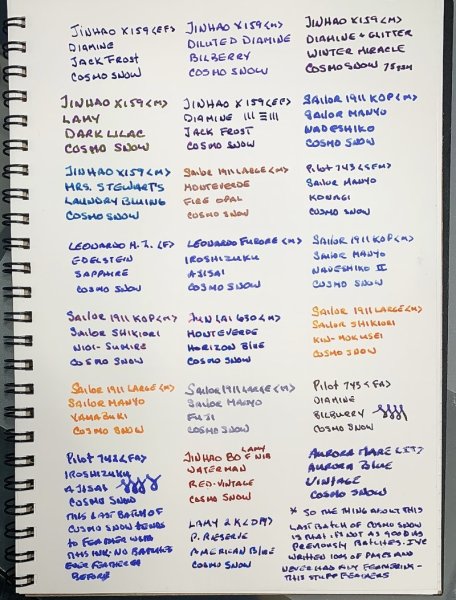 JINHAO X159 <EF>
DIAMINE
JACK FROST
COSMO SNOW
JINHAO X159 <M>
DILUTED DIAMINE
BILBERRY
COSMO SNOW
JINHAO X159 <M>
DIAMINE + GLITTER
WINTER MIRACLE
COSMO SNOW 75gsm
JINHAO X159 <M>
LAMY
DARK LILAC
COSMO SNOW
JINHAO X159 <EF>
DIAMINE
JACK FROST
COSMO SNOW
SAILOR 1911 KOP <M>
SAILOR MANYO
NADESHIKO
COSMO SNOW
JINHAO X159 <M>
MRS. STEWART'S
LAUNDRY BLUING
COSMO SNOW
SAILOR 1911 LARGE <M>
MONTEVERDE
FIRE OPAL
COSMO SNOW
PILOT 743 <SFM>
SAILOR MANYO
KONAGI
COSMO SNOW
LEONARDO M.Z. <F>
EDELSTEIN
SAPPHIRE
COSMO SNOW
LEONARDO FURORE <M>
IROSHIZUKU
AJISAI
COSMO SNOW
SAILOR 1911 KOP <M>
SAILOR MANYO
NADESHIKO II
COSMO SNOW
SAILOR 1911 KOP <M>
SAILOR SHIKIORI
NIOI-SUMIRE
COSMO SNOW
JUN LAI 630 <M>
MONTEVERDE
HORIZON BLUE
COSMO SNOW
SAILOR 1911 LARGE <M>
SAILOR SHIKIORI
KIN-MOKUSEI
COSMO SNOW
SAILOR 1911 LARGE <M>
SAILOR MANYO
YAMABUKI
COSMO SNOW
SAILOR 1911 LARGE <M>
SAILOR MANYO
FUJI
COSMO SNOW
PILOT 743 <FA>
DIAMINE
BILBURRY
COSMO SNOW
PILOT 743 <FA>
IROSHIZUKU
AJISAI
COSMO SNOW
THIS LAST BATCH OF
COSMO SNOW TENDS
TO FEATHER WITH
THIS INK. NO BATCHES
EVER FEATHERED
BEFORE
JINHAO 80 LAMY F NIB
WATERMAN
RED-VINTAGE
COSMO SNOW
LAMY 2K
P. RESERVE
AMERICAN BLUE
COSMO SNOW
AURORA MARE
AURORA BLUE
VINTAGE
COSMO SNOW
* SO THE THING ABOUT THIS
LAST BATCH OF COSMO SNOW
IS THAT IT'S NOT AS GOOD AS
PREVIOUSLY BATCHES. I'VE
WRITTEN 100s OF PAGES AND
NEVER HAD ANY FEATHERING -
THIS STUFF FEATHERS